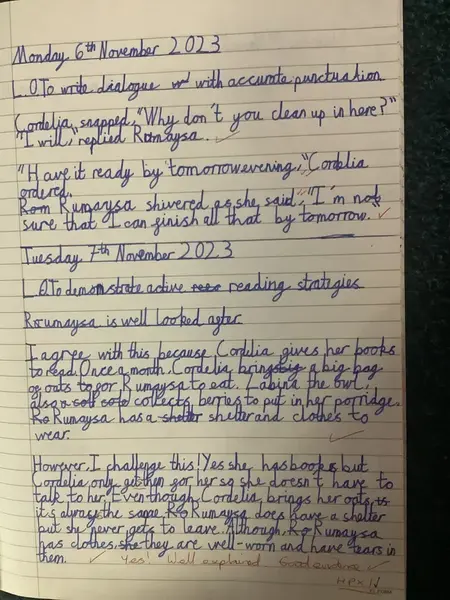 Monday 6th November 2023
L.O.To write dialogue with accurate punctuation
Cordelia snapped, "Why don't you clean up in here?"
"I will," replied Rumaysa.
"Have it ready by tomorrow evening," Cordelia
ordered.
Rumaysa shivered as she said, "I'm not
sure that I can finish all that by tomorrow.
Tuesday 7th November 2023
L.O.To demonstrate active reading strategies
Rumaysa is well looked after.
I agree with this because Cordelia gives her books
to read. Once a month. Cordelia brings a big bag
of oats for Rumaysa to eat. Zabina the owl
also collects berries to put in her porridge.
Rumaysa has a shelter and clothes to
wear.
However, I challenge this! Yes she has books but
Cordelia only get them for her so she doesn't have to
talk to her. Even though, Cordelia brings her oats,
it's always the same. Rumaysa does have a shelter
but she never gets to leave. Although, Rumaysa
has clothes, they are well-worn and have tears in
them. Yes! Well explained Good evidence